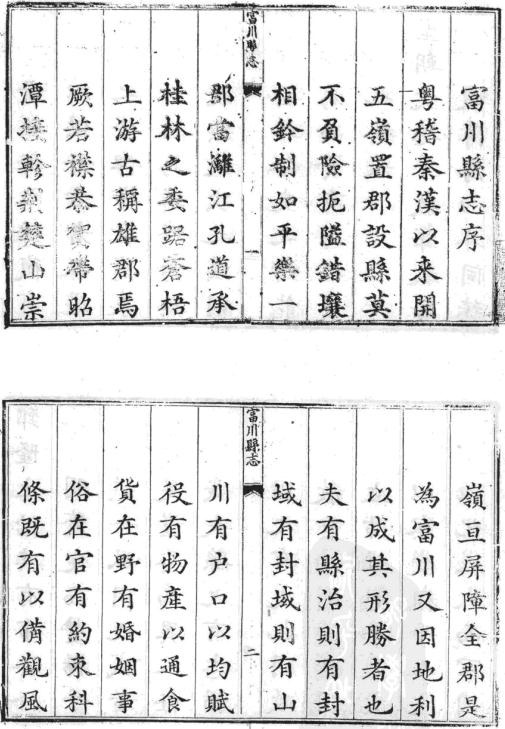 富川縣志序
粵稽秦漢以來開
五嶺置郡設縣莫
不負險扼隘錯壤
相鈐制如平樂一
富川縣志
一
郡當灕江孔道承
桂林之委踞蒼梧
上游古稱雄郡焉
厥若襟恭賀帶昭
潭楚山崇
嶺亘屏障全郡是
為富川又因地利
以成其形勝者也
夫有縣治則有封
域有封域則有山
富川縣志
二
川有户口以均賦
役有物產以通食
貨在野有婚姻事
俗在官有約束科
條既有以備觀風